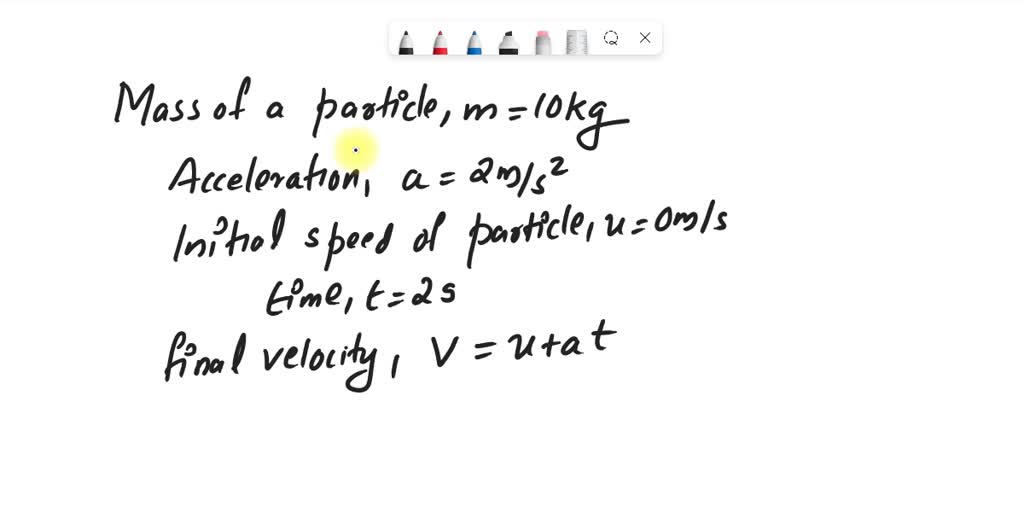 Mass of a particle, m = 10kg
Acceleration, a = 2m/s²
Initial speed of particle, u = 0m/s
time, t = 2s
final velocity, V = u + a t